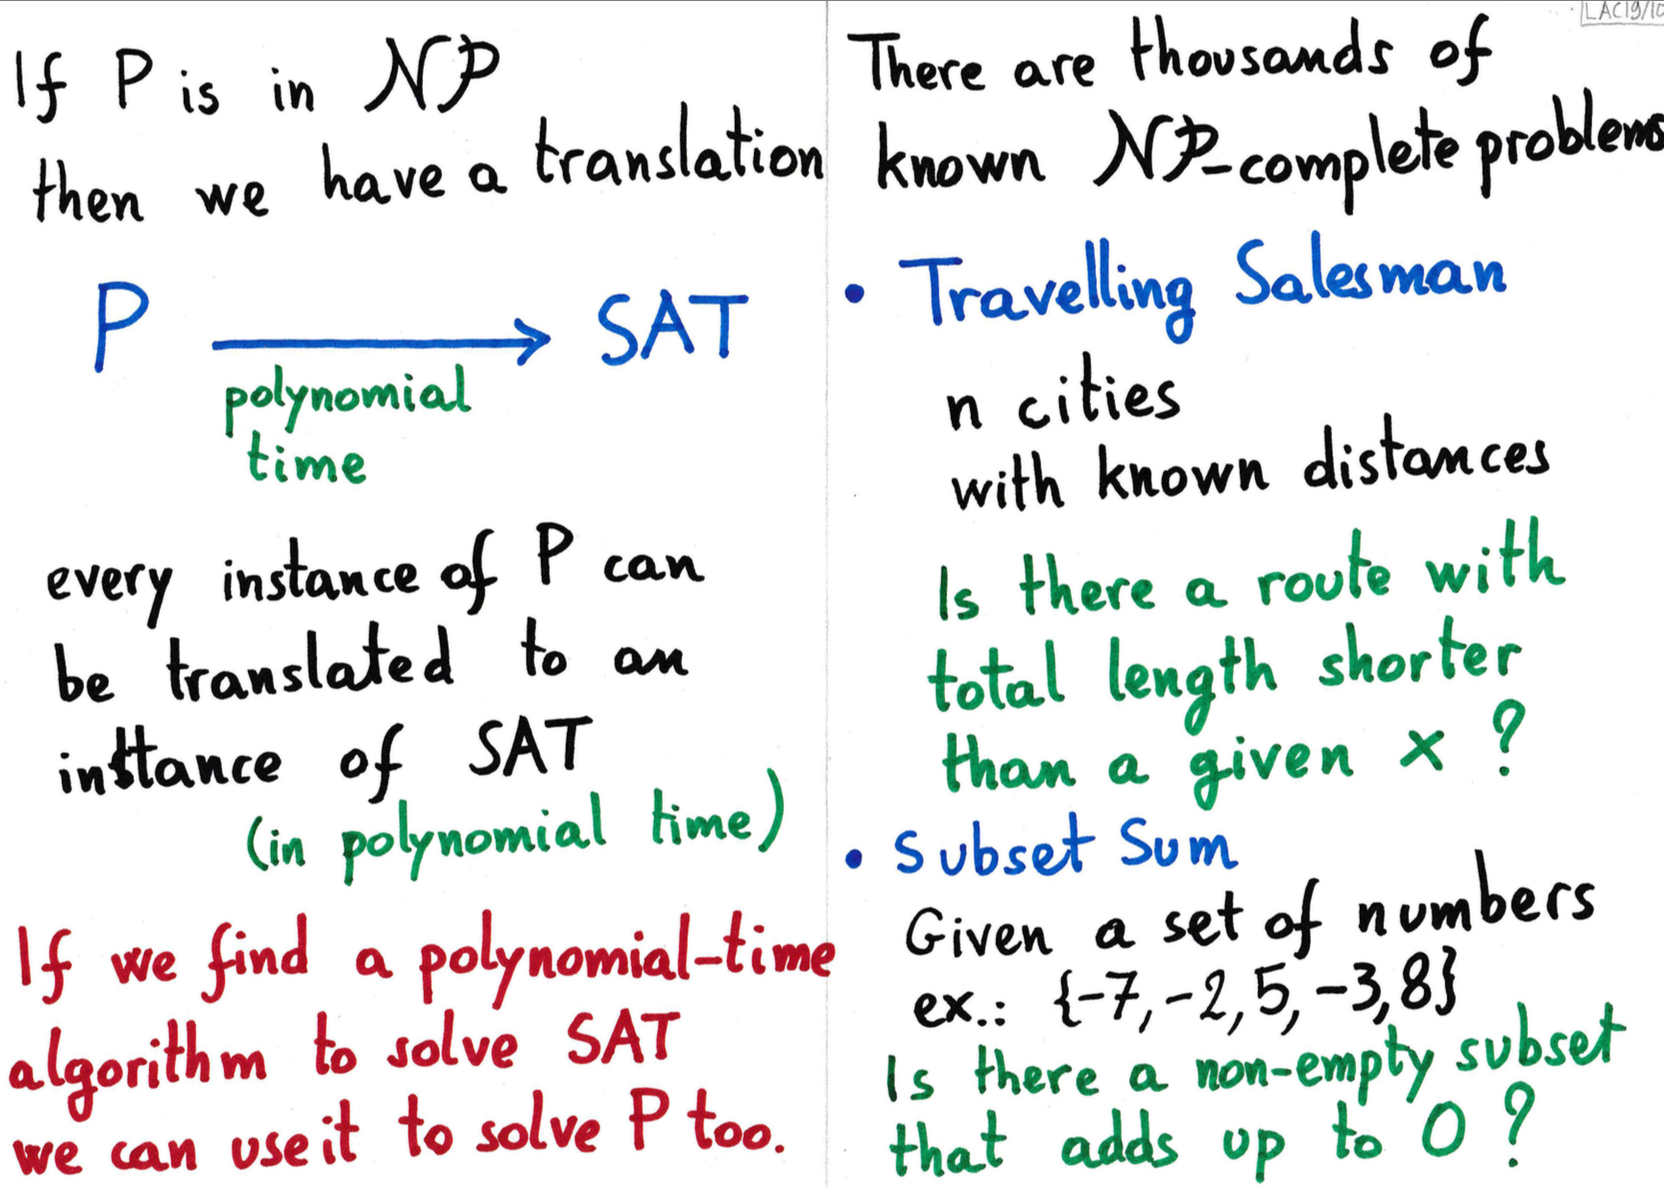 If P is in NP
then we have a translation
P → SAT
polynomial
time
every instance of P can
be translated to an
instance of SAT
(in polynomial time)
If we find a polynomial-time
algorithm to solve SAT
we can use it to solve P too.
LAC19/10
There are thousands of
known NP-complete problems
• Travelling Salesman
n cities
with known distances
Is there a route with
total length shorter
than a given x ?
• Subset Sum
Given a set of numbers
ex.: {-7, -2, 5, -3, 8}
Is there a non-empty subset
that adds up to 0 ?